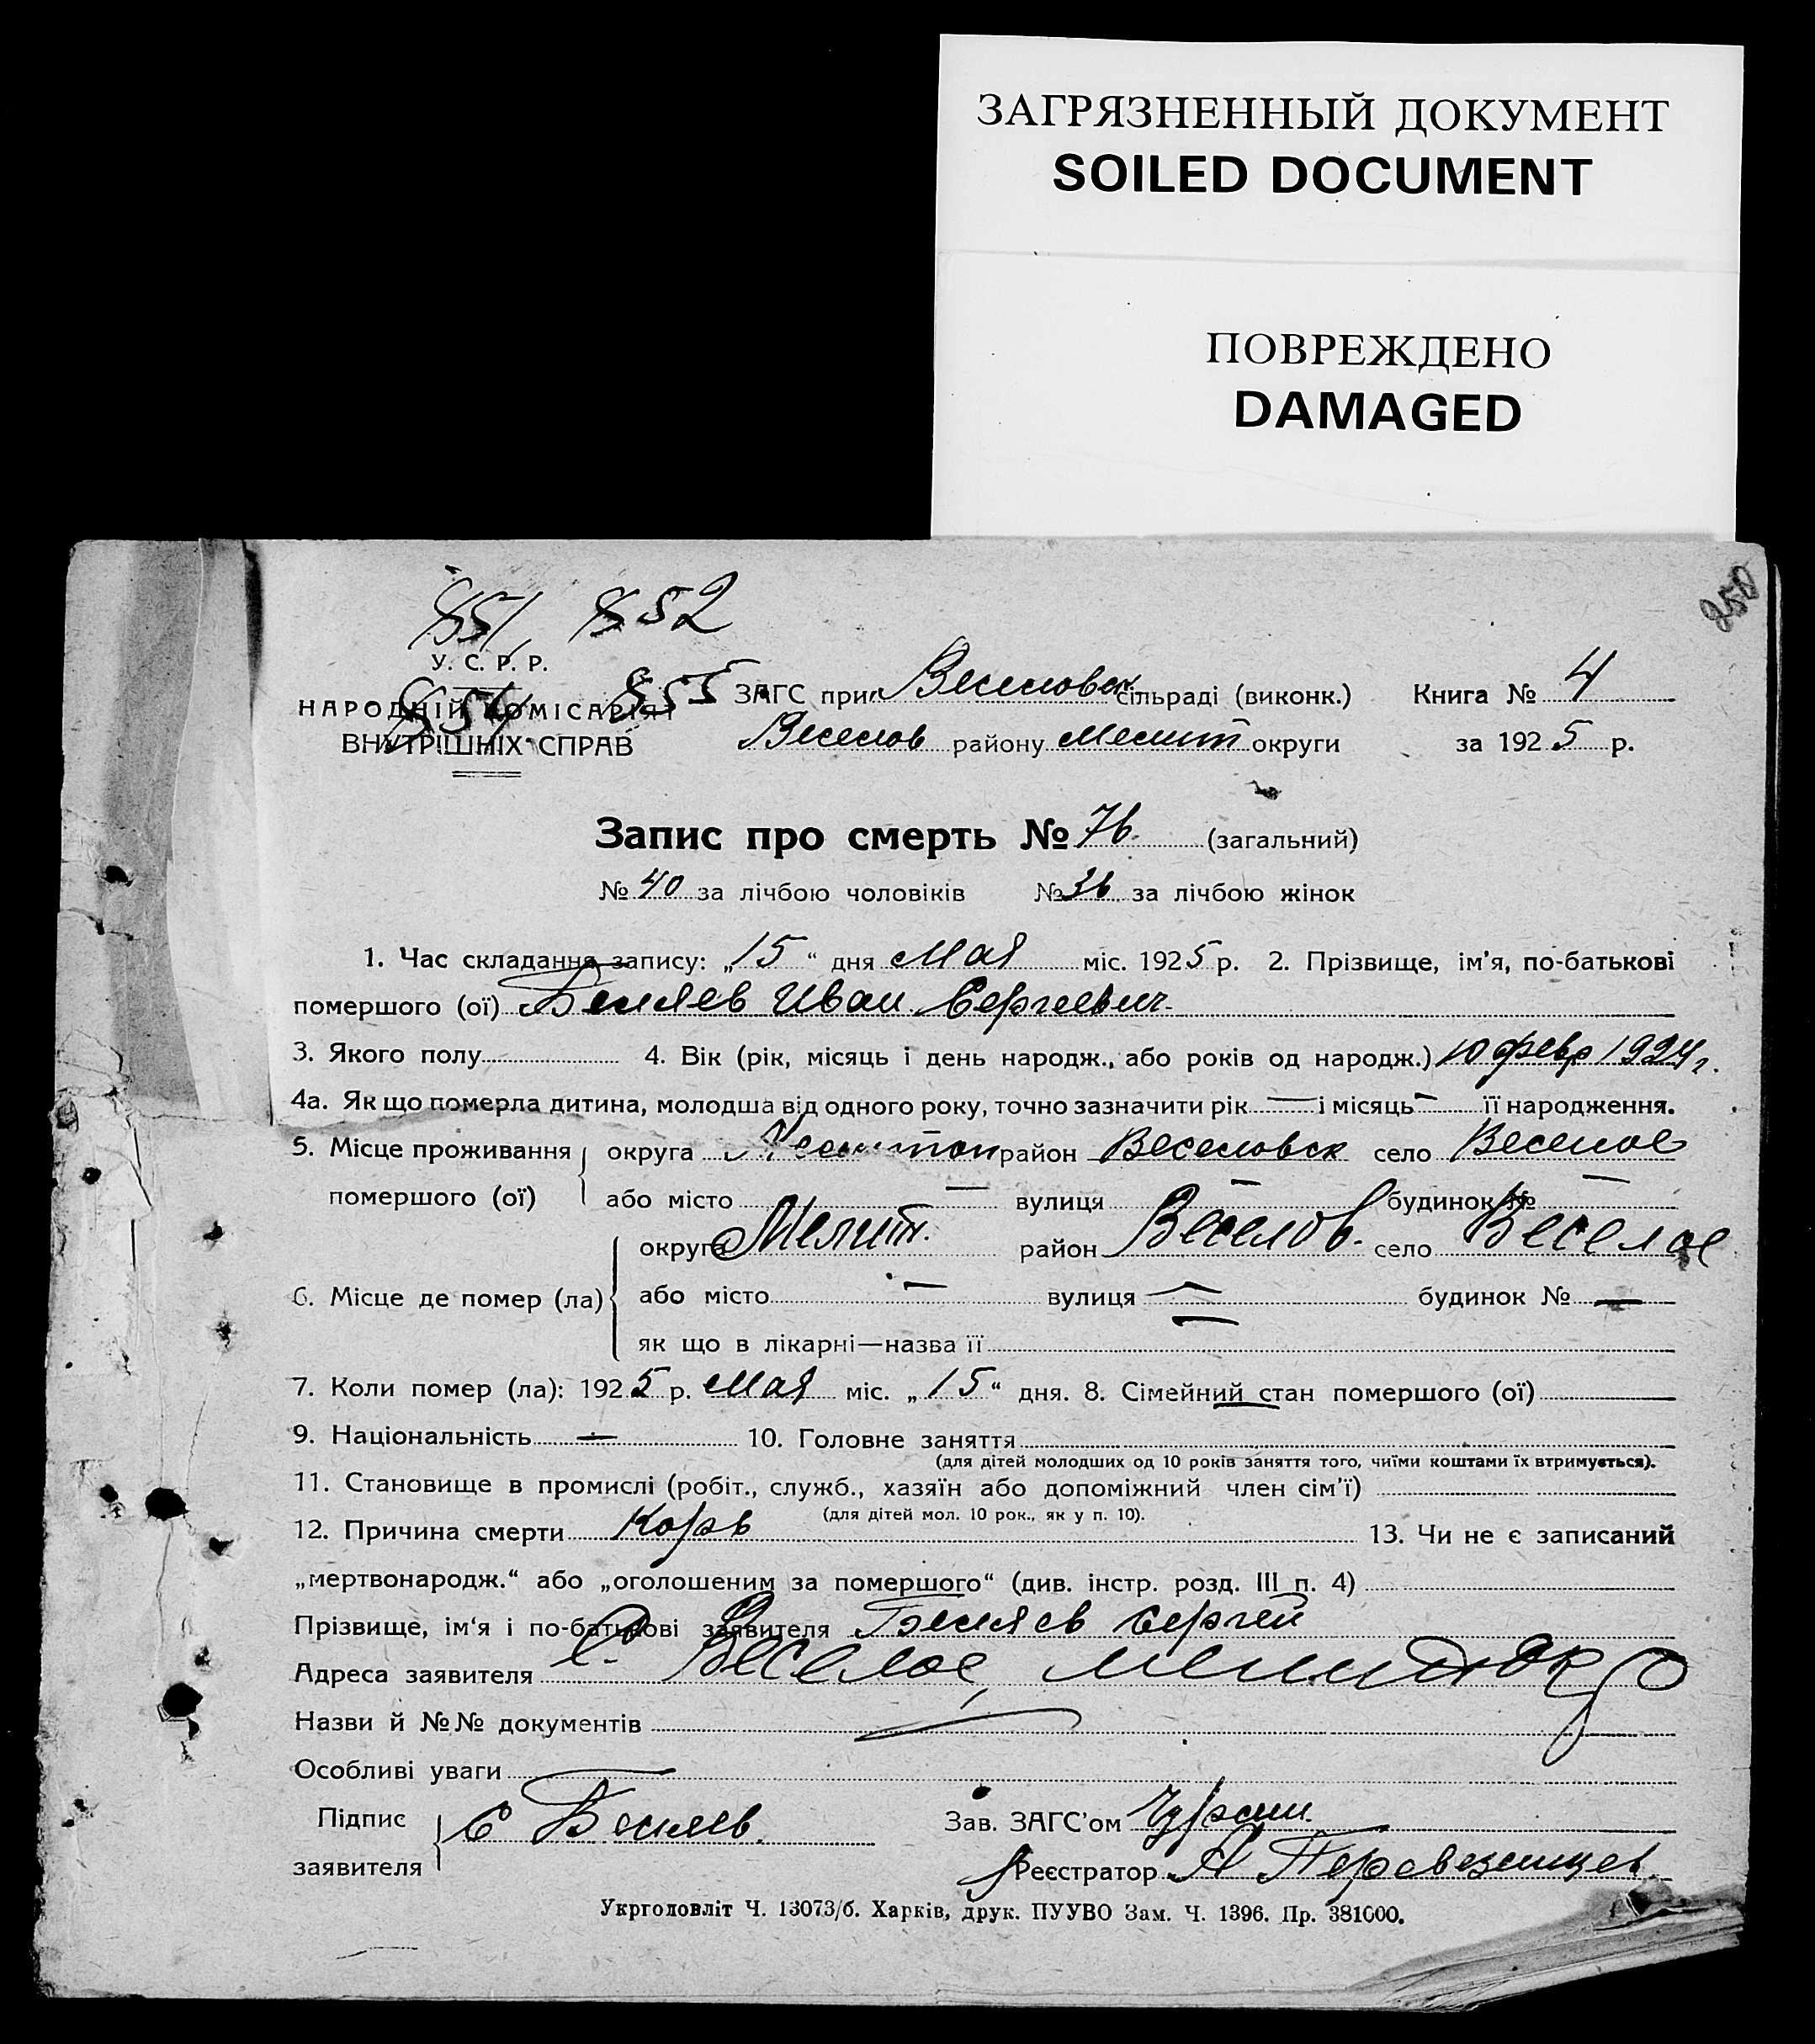 ЗАГРЯЗНЕННЫЙ ДОКУМЕНТ
SOILED DOCUMENT
ПОВРЕЖДЕНО
DAMAGED
250
851, 852
У. С. Р. Р.
854 855
НАРОДНІЙ КОМІСАРІЯТ
ВНУТРІШНІХ СПРАВ
ЗАГС при Веселовск сільраді (виконк.) Книга № 4
Веселов району Мелит округи за 1925 р.
Запис про смерть № 76 (загальний)
№ 40 за лічбою чоловіків № 36 за лічбою жінок
1. Час складання запису: „15“ дня Мая міс. 1925 р. 2. Прізвище, ім'я, по-батькові
помершого (ої) Беляев Иван Сергеевич
3. Якого полу 4. Вік (рік, місяць і день народж., або років од народж.) 10 февр 1924 г.
4а. Як що померла дитина, молодша від одного року, точно зазначити рік — і місяць — її народження.
5. Місце проживання округа район Веселовск село Веселое
помершого (ої) або місто — вулиця — будинок № —
округа Мелит. район Веселов. село Веселое
6. Місце де помер (ла) або місто — вулиця — будинок № —
як що в лікарні—назва її
7. Коли помер (ла): 1925 р. Мая міс. „15“ дня. 8. Сімейний стан помершого (ої)
9. Національність — 10. Головне заняття
(для дітей молодших од 10 років заняття того, чиїми коштами їх втримується).
11. Становище в промислі (робіт., служб., хазяїн або допоміжний член сім'ї)
(для дітей мол. 10 рок., як у п. 10).
12. Причина смерти Корь 13. Чи не є записаний
„мертвонародж.“ або „оголошеним за помершого“ (див. інстр. розд. III п. 4)
Прізвище, ім'я і по-батькові заявителя Беляев Сергей
Адреса заявителя С. Веселое,
Назви й №№ документів —
Особливі уваги
Підпис заявителя С Беляев.
Зав. ЗАГС'ом
Реєстратор А Перевезенцев
Укрголовліт Ч. 13073/б. Харків, друк. ПУУВО Зам. Ч. 1396. Пр. 381000.